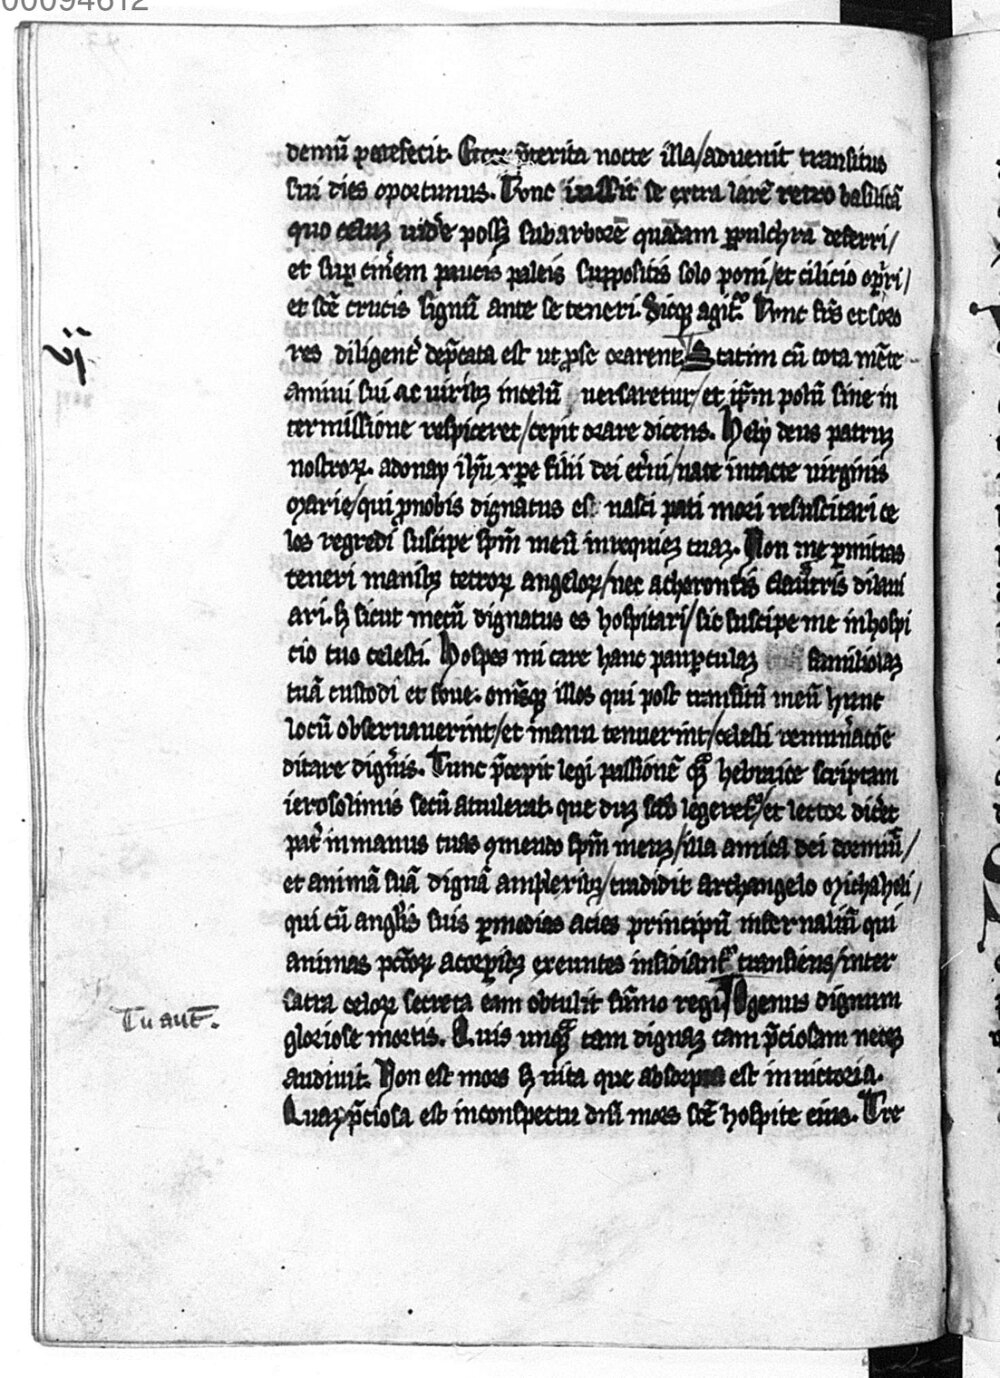 00094612
demū patefecit. Ecce p̄terita nocte illa/aduenit transitus
sui dies oportunus. Tunc iussit se extra larē retro basilicā
quo celuꝫ uid'e possꝫ sub arborē quādam ꝑpulchrā deferri/
et suꝑ cin'em paucis paleis suppositis solo poni/et cilicio oꝑ'ri/
et sc̄e crucis signū ante se teneri. Hicqꝫ agit'. Tunc fr̄s et soro
vj
res diligent' dep̄cata est ut ꝓ se orarent. Statim cū tota mēte
animi sui ac uiribꝫ in celū uersaretur/et ip̄m polū sine in
termissione respiceret/cepit orare dicens. Hely deus patruꝫ
nostroꝝ. adonay ih̄u xp̄e filii dei et'ni/nate intacte uirginis
marie/qui ꝓ nobis dignatus es nasci pati mori resuscitari ce
los regredi suscipe sp̄m meū in requieꝫ tuaꝫ. Non me ꝑmittas
teneri manibꝫ tetroꝝ angeloꝝ/nec acherontis claustris dilani
ari. sꝫ sicut mecū dignatus es hospitari/sic suscipe me in hospi
cio tuo celesti. Hospes mi care hanc pauꝑculaꝫ familiolaꝫ
tuā custodi et foue. om̄sqꝫ illos qui post transitū meū hunc
locū obseruauerint/et in manu tenuerint/celesti remun'acōe
ditare digneris. Tunc p̄cepit legi passionē q̄ hebraice scriptam
ierosolimis secū attulerat. que duꝫ sc̄do legeret'/et lector dic'et
pat' in manus tuas ꝯmendo sp̄m meuꝫ/illa amica dei dormiu̅/
et animā suā dignā amplexibꝫ/tradidit archangelo michaheli/
qui cū angl̄is suis ꝑ medias acies principū infernaliū qui
animas pct̄oꝝ a corꝑibꝫ exeuntes insidiant' transiens/inter
satra celoꝝ secreta eam obtulit sūmo regi. O genus dignum
Tu aut̄.
gloriose mortis. Quis unqꝫ tam dignaꝫ tam p̄ciosam neceꝫ
audiuit. Non est mors sꝫ uita que absorpta est in uictoria.
Quaꝫ p̄ciosa est in conspectu dn̄i mors sc̄e hospite eius. Tre